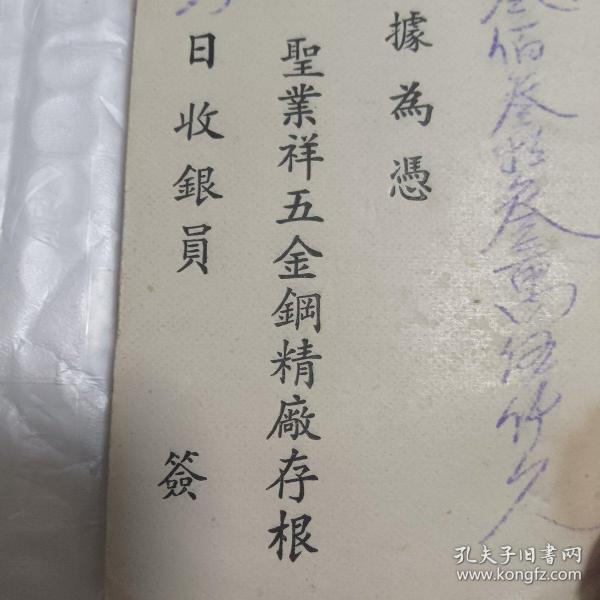 叁佰叁拾叁萬伍仟久
據為憑
聖業祥五金鋼精廠存根
日收銀員 簽
孔夫子旧书网
www.kongfz.com